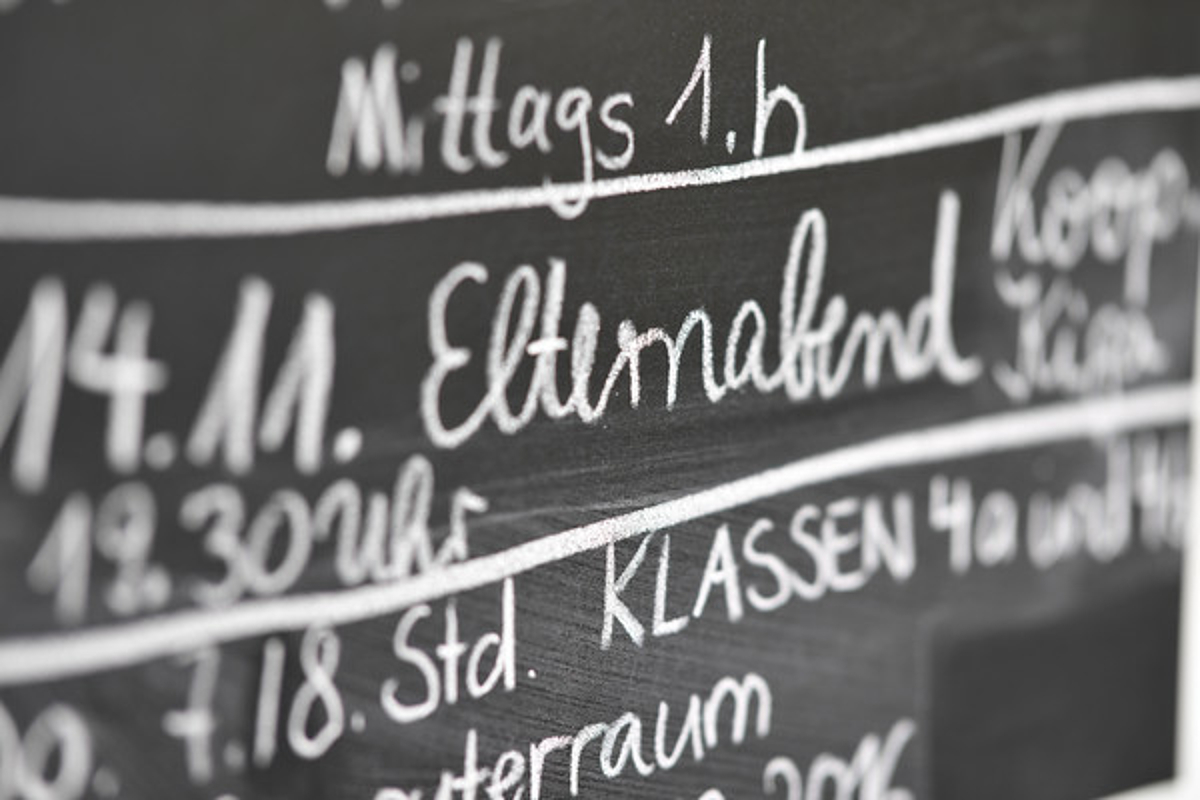 Mittags 1.h
14.11. Elternabend Koop.
19.30 Uhr
7./8. Std. KLASSEN 4a und
terraum
2016